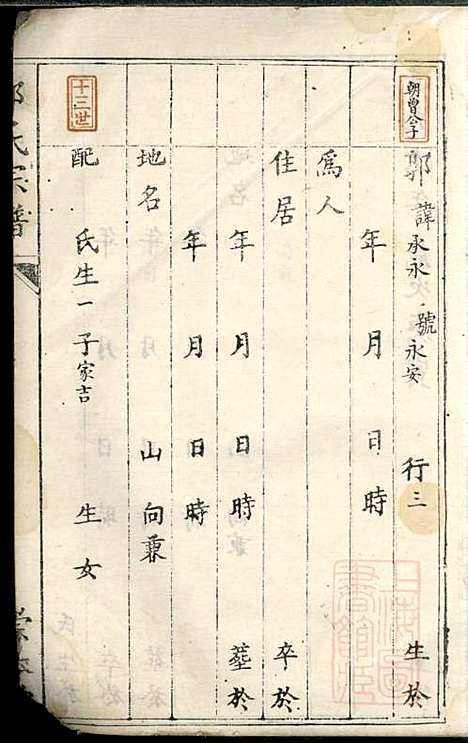 朝曾公子
郭 諱承永 號永安 行三 生於
年 月 日 時
爲人
住居 卒於
年 月 日 時 塟於
年 月 日 時
地名 山向兼
十三世
配 氏生一子家吉 生女
氏宗譜
上海圖書館藏